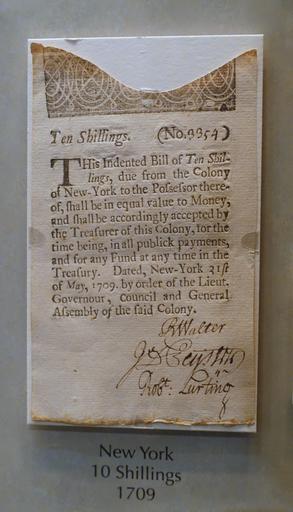 Ten Shillings. (No.9354)
THis Indented Bill of Ten Shil-
lings, due from the Colony
of New-York to the Poſſeſſor there-
of, ſhall be in equal value to Money,
and ſhall be accordingly accepted by
the Treaſurer of this Colony, for the
time being, in all publick payments,
and for any Fund at any time in the
Treaſury. Dated, New-York 21ſt
of May, 1709. by order of the Lieut.
Governour, Council and General
Aſſembly of the ſaid Colony.
RWalter
Robt: Lurting
New York
10 Shillings
1709